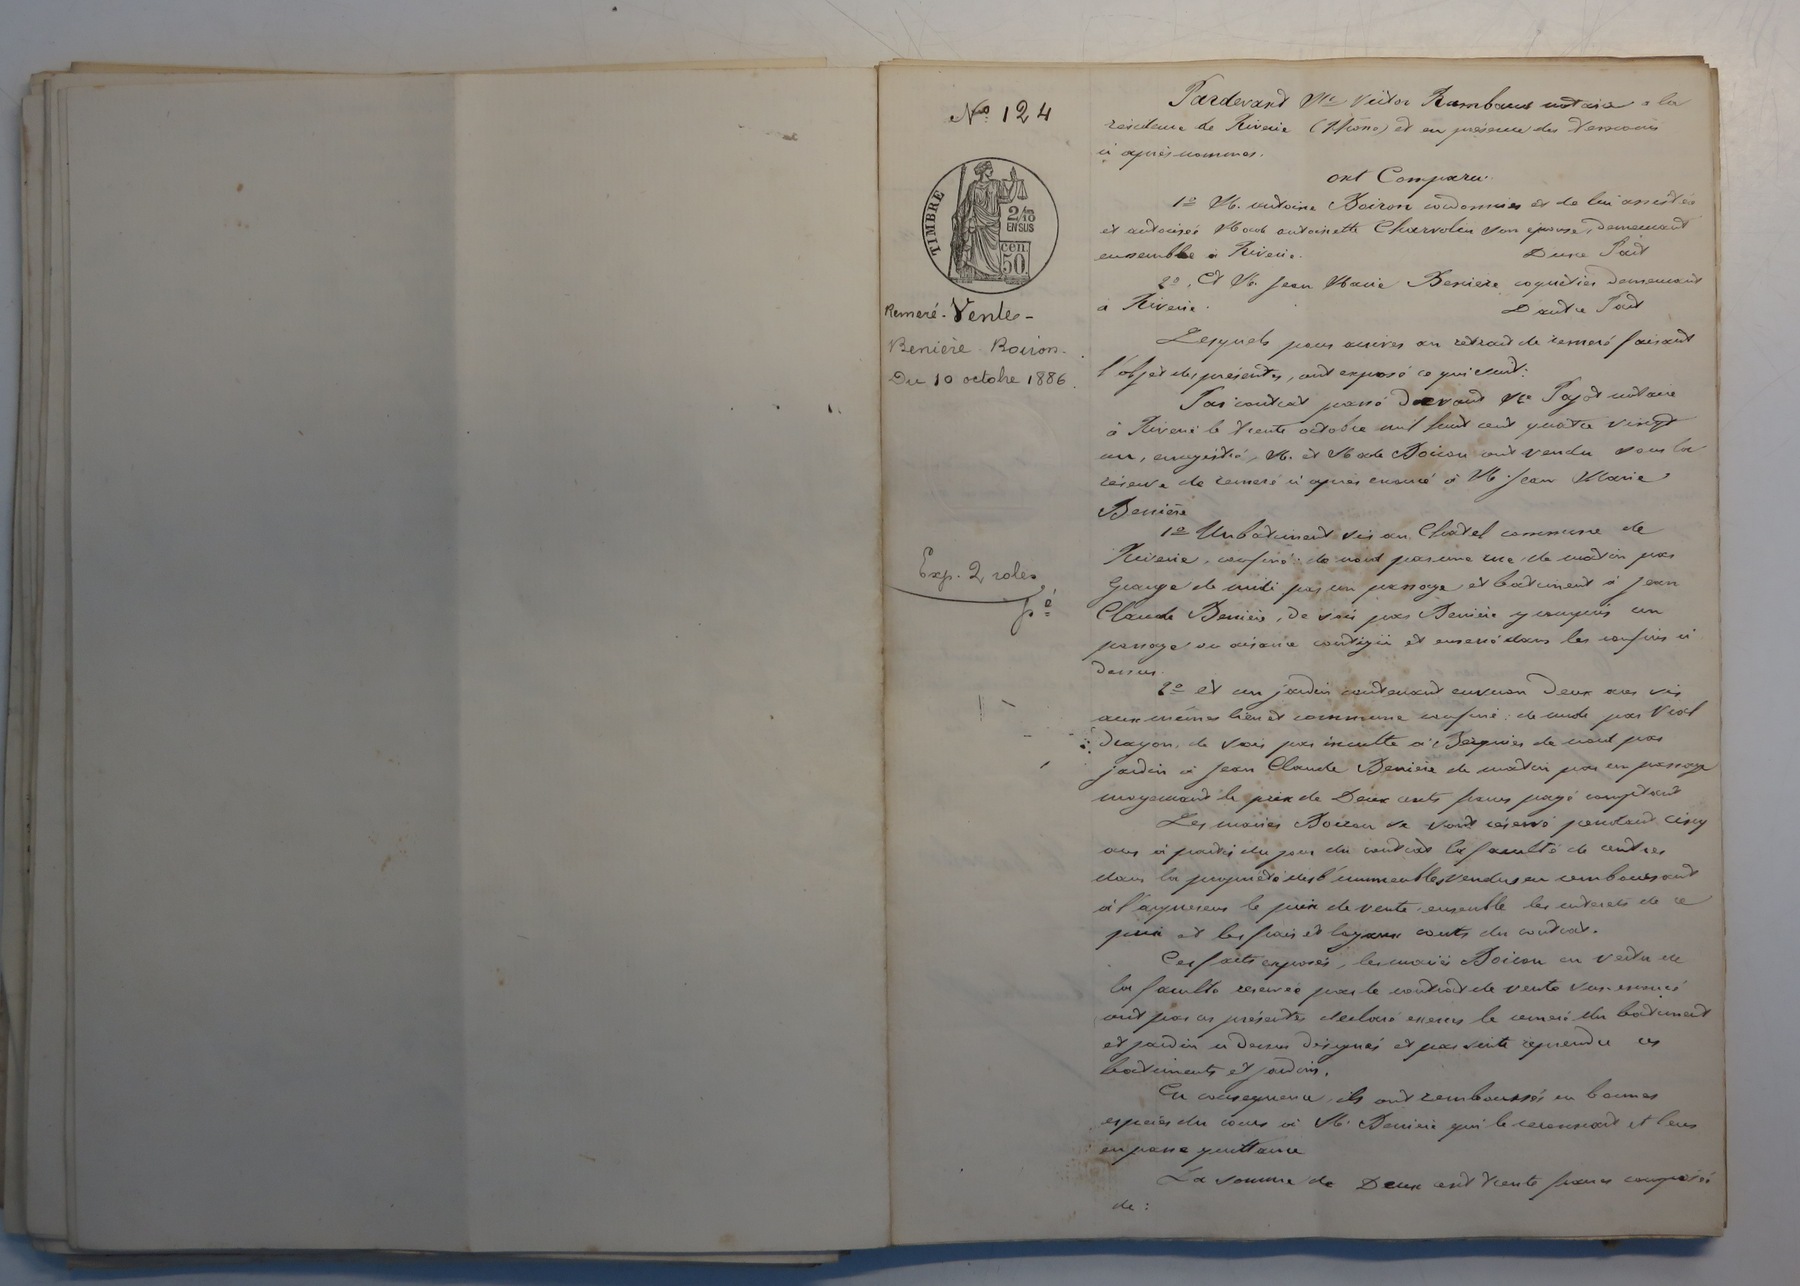 No. 124
TIMBRE
2/10
EN SUS
cen.
50.
Remeré-Vente-
Benière Boiron-
Du 10 octobre 1886.
Exp. 2 roles
Pardevant Me Victor Rambaud notaire à la
résidence de Riverie (Rhône) et en présence des témoins
ci après nommés.
ont Comparu.
1o M. Antoine Boiron cordonnier et de lui assistée
et autorisée Made Antoinette Charvolin son épouse, demeurant
ensemble à Riverie. D'une Part
2o. Et M. Jean Marie Benière coquetier demeurant
à Riverie. D'autre Part
Lesquels pour arriver au retrait de remeré faisant
l'objet des présentes, ont exposé ce qui suit:
Par contrat passé devant Me Pajot notaire
à Riverie le trente octobre mil huit cent quatre vingt
un, enregistré, M. et Made Boiron ont vendu sous la
réserve de remeré ci après énoncé à M. Jean Marie
Benière
1o Un batiment sis au Châtel commune de
Riverie, confiné: de nord par une rue, de matin par
Grange de midi par un passage et batiment à Jean
Claude Benière, de soir par Benière y compris un
passage ou aisance contigüe et enserré dans les confins ci
dessus.
2o et un jardin contenant environ deux ares sis
aux mêmes lieu et commune confiné: de midi par Vial
Drayon, de soir par inculte à de nord par
jardin à Jean Claude Benière de matin par un passage
moyennant le prix de Deux cents francs payé comptant
Les mariés Boiron se sont réservé pendant cinq
ans à partir du jour du contrat la faculté de rentrer
dans la propriété des immeubles vendus en remboursant
à l'acquéreur le prix de vente, ensemble les intérêts de ce
prix et les frais et loyaux couts du contrat.
Ces faits exposés, les mariés Boiron en vertu de
la faculté réservée par le contrat de vente sus énoncé
ont par ces présentes déclaré exercer le remeré du batiment
et jardin ci dessus désignés et par suite reprendre ces
batiments et jardin.
En conséquence, ils ont remboursés en bonnes
espèces du cours à M. Benière qui le reconnait et leur
en passe quittance
La somme de Deux cent trente francs composée
de: